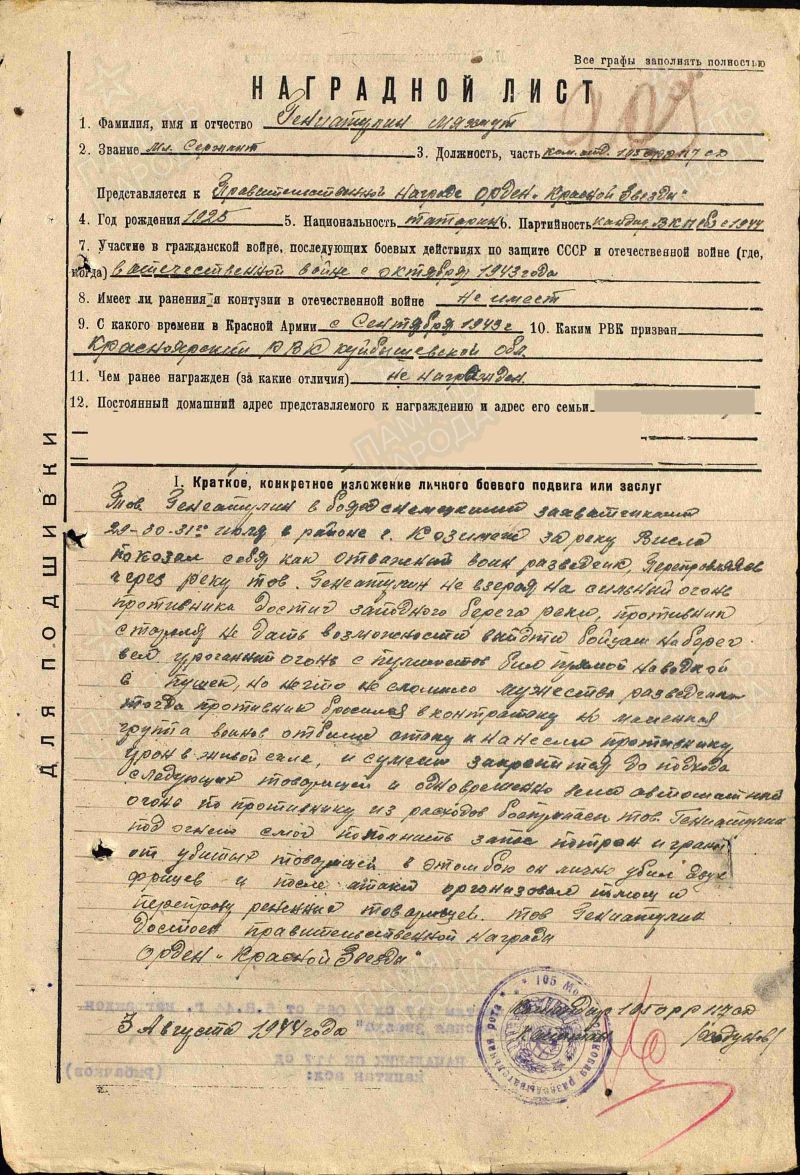 Все графы заполнять полностью
НАГРАДНОЙ ЛИСТ
1. Фамилия, имя и отчество Гениатулин Мяхмут
2. Звание мл. Сержант 3. Должность, часть ком. отд. 105 орр 117 сд
Представляется к Правительственной награде орден „Красной Звезды"
4. Год рождения 1925 5. Национальность татарин 6. Партийность кандид ВКП(б) с 1944
7. Участие в гражданской войне, последующих боевых действиях по защите СССР и отечественной войне (где,
когда) в отечественной войне с октября 1943 года
8. Имеет ли ранения и контузии в отечественной войне не имеет
9. С какого времени в Красной Армии с Сентября 1943 г 10. Каким РВК призван
Красноярский РВК Куйбышевской обл.
11. Чем ранее награжден (за какие отличия) не награжден
12. Постоянный домашний адрес представляемого к награждению и адрес его семьи
ДЛЯ ПОДШИВКИ
I. Краткое, конкретное изложение личного боевого подвига или заслуг
Тов Гениатулин в с немецкими захватчиками
29-30-31го июля в районе г. Козимеж за реку Висла
показал себя как отважный воин разведчик. Переправляясь
через реку тов. Гениатулин не взерая на сильный огонь
противника достиг западного берега реки, противник
старался не дать возможности выйдти бойцам на берег
вел ураганный огонь с пулеметов бил прямой наводкой
с пушек, но нечто не сломило мужества разведчика
тогда противник бросился в контратаку но маленькая
группа воинов отбила атаку и нанесла противнику
урон в живой силе, и сумели закрепится до подхода
следующих товарищей и одновременно вели автоматный
огонь по противнику из расходов боеприпасы тов. Гениатулин
под огнем смог пополнить запас патрон и гранат
от убитых товарищей в этом бою он лично убил двух
фрицев и после атаки организовал помощь и
переправу раненных товарищев. тов Гениатулин
достоен правительственной награды
орден „Красной Звезды"
Командир 105 орр 117 сд
3 Августа 1944 года Капитан